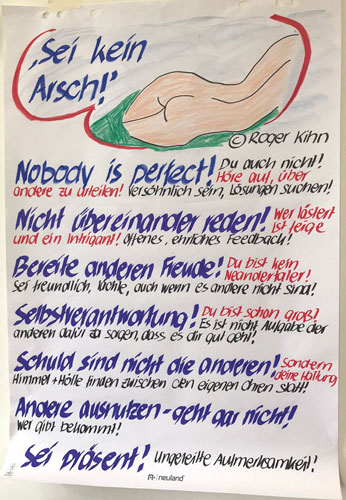 „Sei kein
Arsch!"
© Roger Kihn
Nobody is perfect! Du auch nicht!
Höre auf, über
andere zu urteilen! Versöhnlich sein, Lösungen suchen!
Nicht übereinander reden! Wer lästert
ist feige
und ein Intrigant! Offenes, ehrliches Feedback!
Bereite anderen Freude! Du bist kein
Neandertaler!
Sei freundlich, höflich, auch wenn es andere nicht sind!
Selbstverantwortung! Du bist schon groß!
Es ist nicht Aufgabe der
anderen dafür zu sorgen, dass es dir gut geht!
Schuld sind nicht die anderen! Sondern
deine Haltung
Himmel + Hölle finden zwischen den eigenen Ohren statt!
Andere ausnutzen - geht gar nicht!
Wer gibt bekommt!
Sei präsent! Ungeteilte Aufmerksamkeit!
neuland